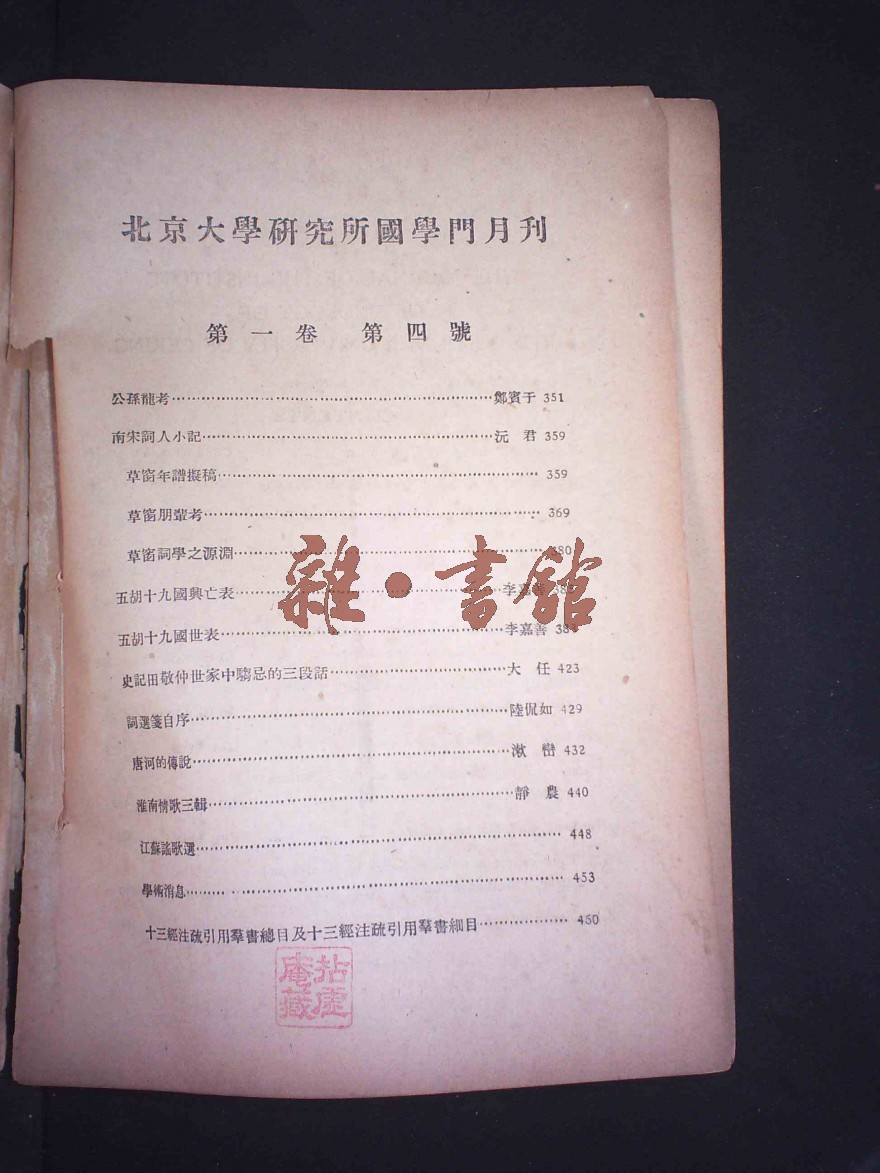 北京大學研究所國學門月刊
第一卷 第四號
公孫龍考⋯⋯鄭賓于 351
南宋詞人小記⋯⋯沅 君 359
草窗年譜擬稿⋯⋯359
草窗朋輩考⋯⋯369
草窗詞學之源淵⋯⋯380
五胡十九國興亡表⋯⋯李嘉善
五胡十九國世表⋯⋯李嘉善
史記田敬仲世家中騶忌的三段話⋯⋯大 任 423
詞選箋自序⋯⋯陸侃如 429
唐河的傳說⋯⋯漱 巒 432
淮南情歌三輯⋯⋯靜 農 440
江蘇謠歌選⋯⋯448
學術消息⋯⋯453
十三經注疏引用羣書總目及十三經注疏引用羣書細目⋯⋯460
雜·書館
拈虛
庵藏